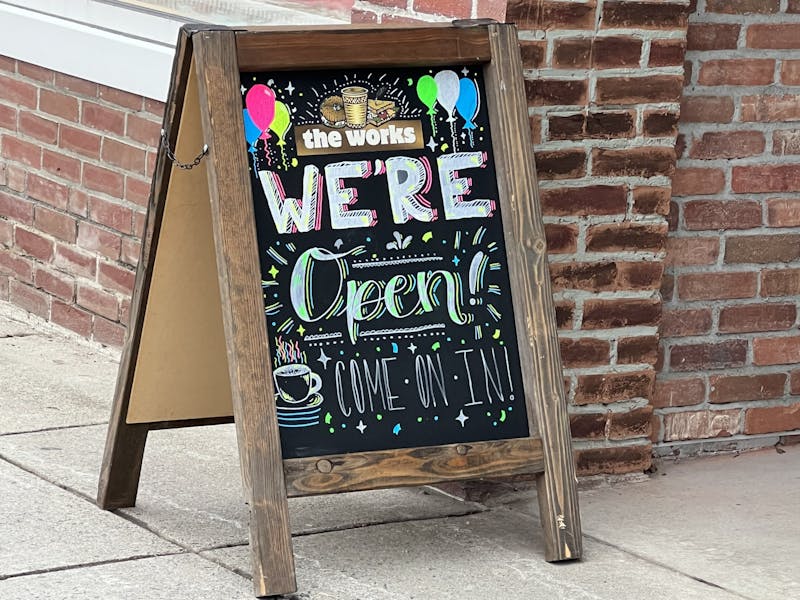 the works
WE'RE
Open!
COME · ON · IN!